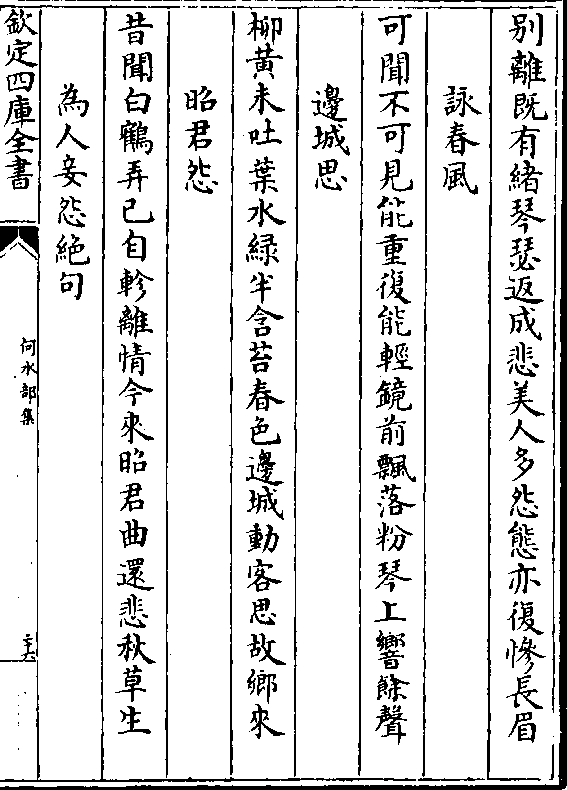 別離既有緒琴瑟返成悲美人多怨態亦復慘長眉
詠春風
可聞不可見能重復能輕鏡前飄落粉琴上響餘聲
邊城思
柳黄未吐葉水緑半含苔春色邊城動客思故鄉來
昭君怨
昔聞白鶴弄已自軫離情今來昭君曲還悲秋草生
為人妾怨絶句
欽定四庫全書
何水部集
二十六